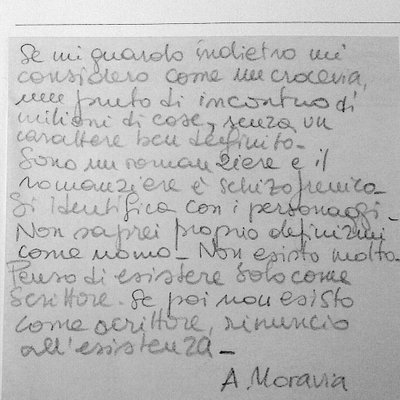 Se mi guardo indietro mi
considero come un crocevia,
un punto di incontro di
milioni di cose, senza un
carattere ben definito-
Sono un romanziere e il
romanziere è schizofrenico-
Si identifica con i personaggi-
Non saprei proprio definirmi
come uomo- Non esisto molto-
Penso di esistere solo come
scrittore. Se poi non esisto
come scrittore, rinuncio
all'esistenza-
A. Moravia